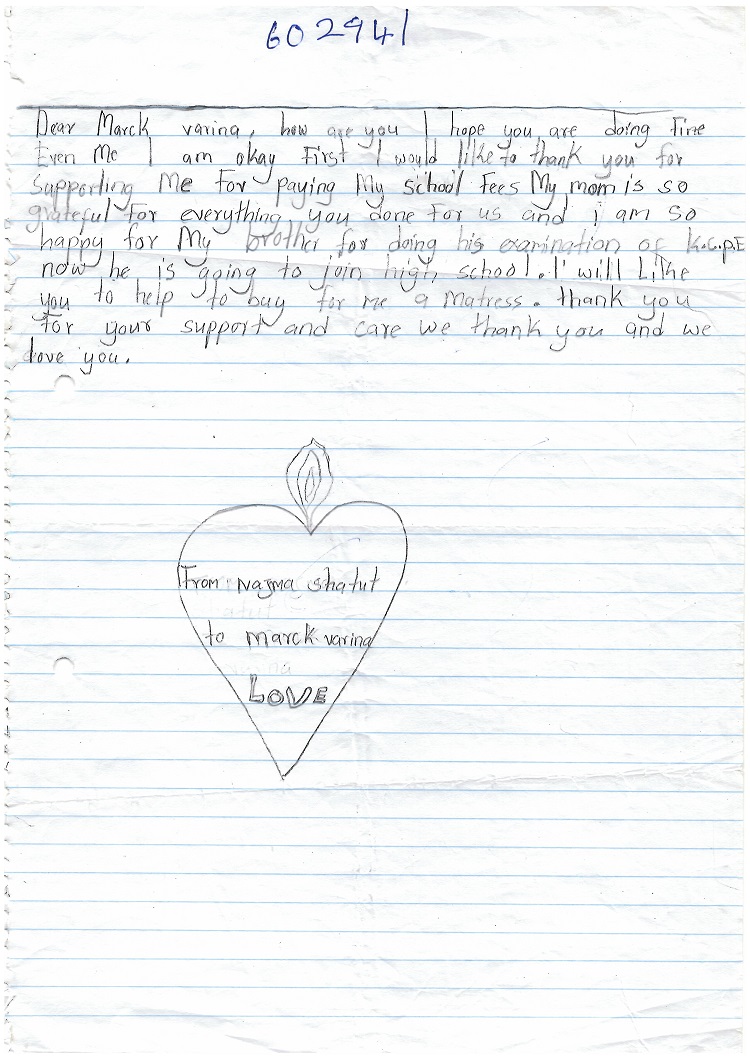 602941
Dear Marck varina, how are you I hope you are doing fine
Even Me I am okay First I would like to thank you for
supporting Me for paying My school Fees My mom is so
grateful for everything you done for us and i am so
happy for My brother for doing his examination of K.C.P.E
now he is going to join high school. I will Like
you to help to buy for me a Matress. thank you
for your support and care we thank you and we
love you.
From Najma shatut
to marck varina
LOVE